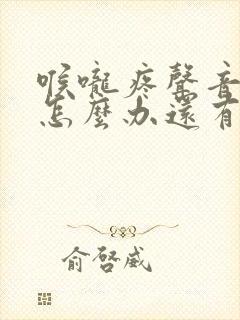 喉嚨疼聲音
怎麼办還有
俞啓威